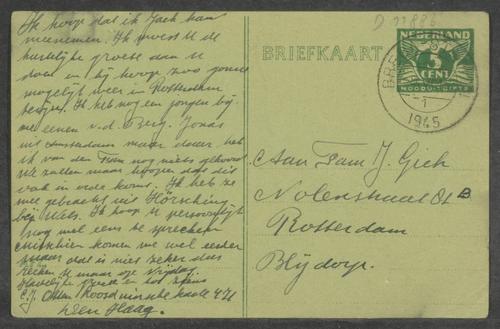 Ik hoop dat ik Jack kan
meenemen. Ik moest U de
hartelijke groeten van U
doen en hij hoopt zoo gauw
mogelijk weer in Rotterdam
Ik heb nog een jongen bij
me eenen v.d. Berg. Jonas
uit Amsterdam maar daar heb
ik van den Fam nog niets gehoord
We zullen maar hopen dat dit
ook in orde komt. Ik heb ze
mee gebracht uit Hörsching
bij Wels. Ik hoop U persoonlijk
nog wel eens te spreken
Misschien komen we wel eerder
maar dat is niet zeker dus
reken U maar op Vrijdag.
Hartelijke groeten en tot ziens
C.J. Roosduinsche kade 471
Den Haag.
D 11886
BRIEFKAART
NEDERLAND
5
CENT
NOODUITGIFTE
1
1945
Aan Fam J. Gich
Nolensstraat 81 B
Rotterdam
Blijdorp.